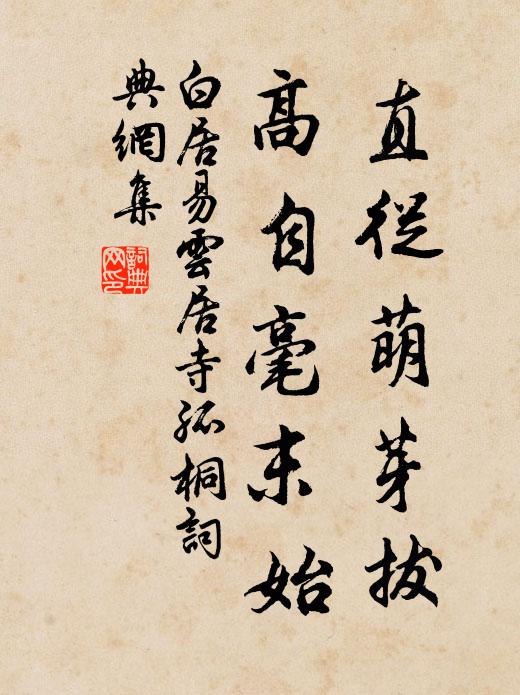 直從萌芽拔
高自毫末始
白居易雲居寺孤桐詞
典網集
詞典
网印